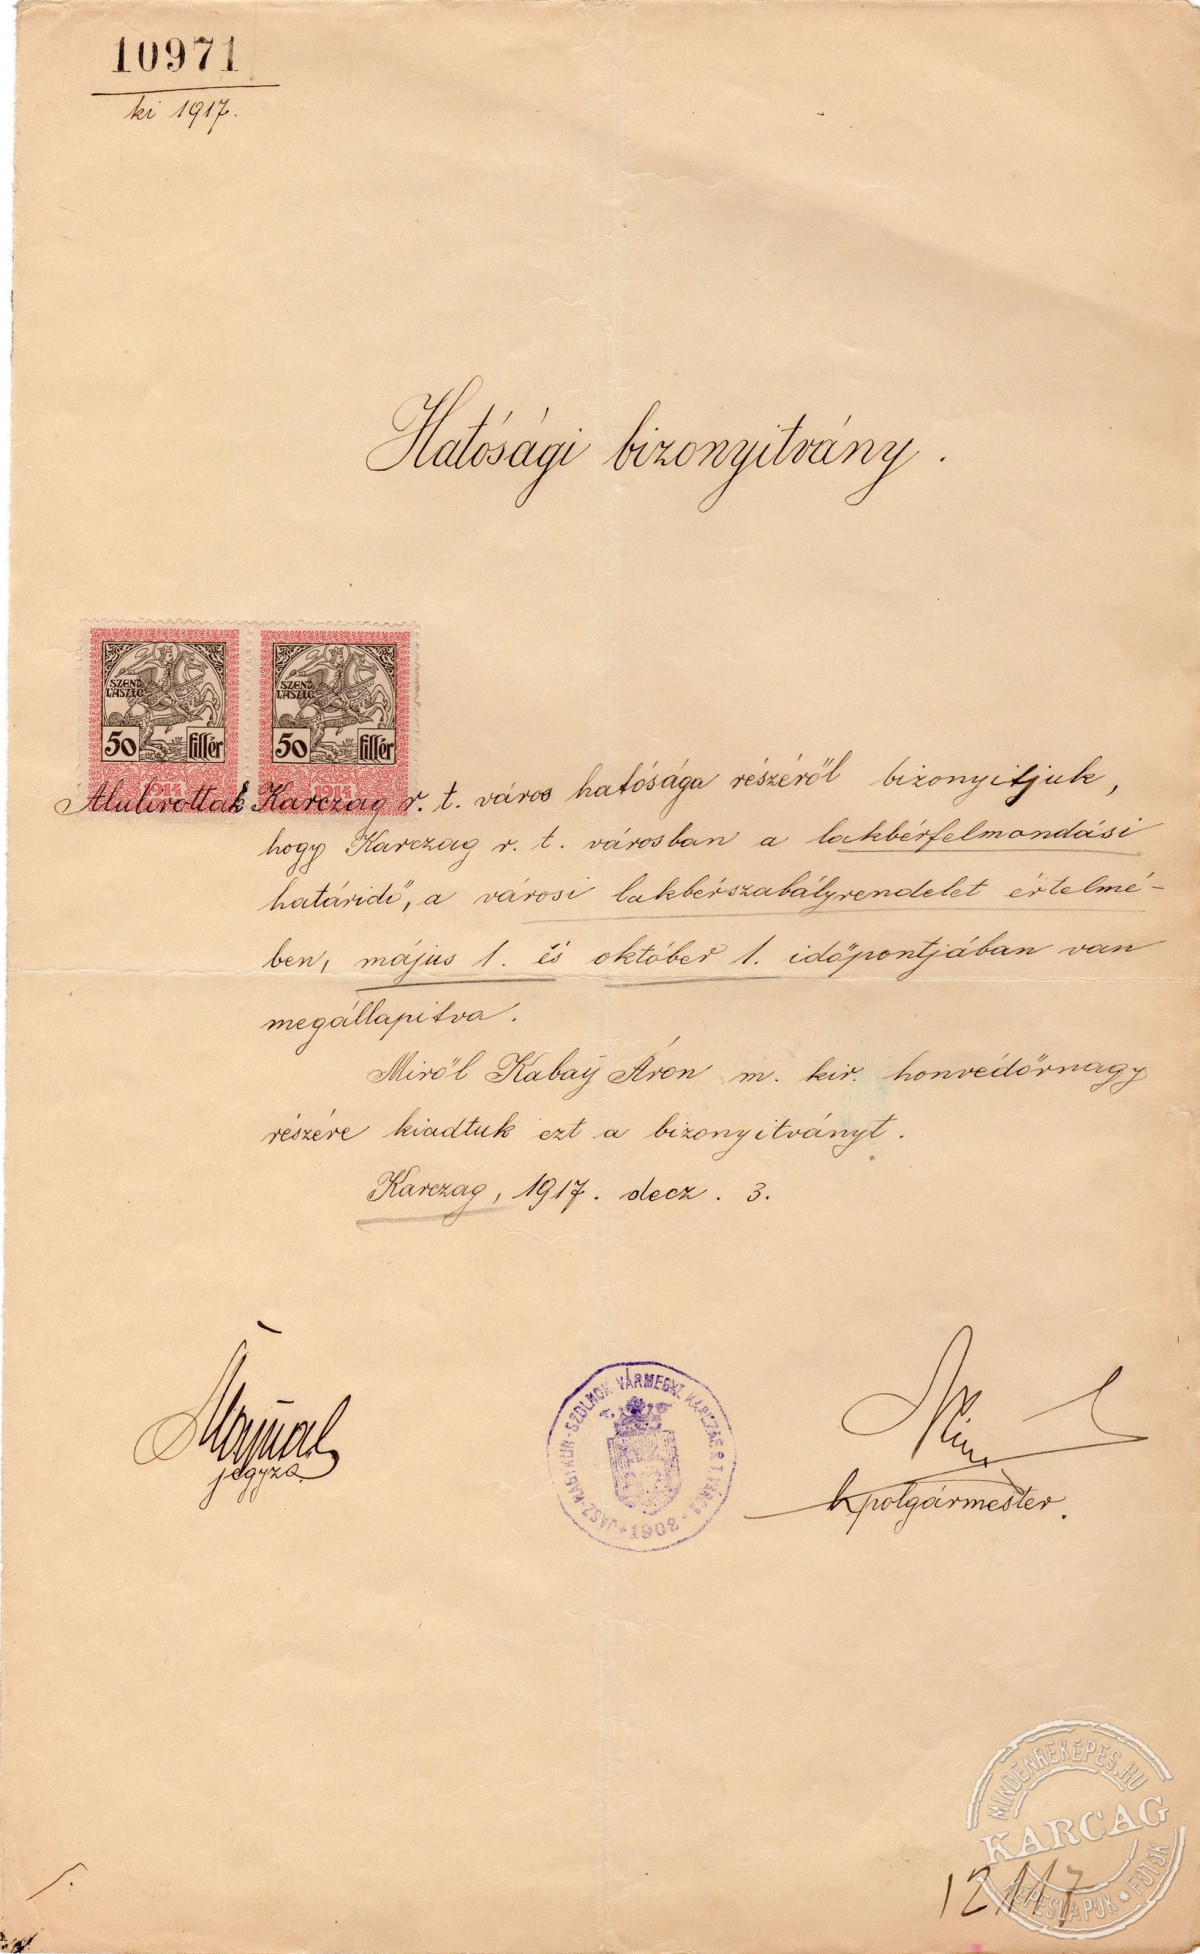 10971
ki 1917.
Hatósági bizonyitvány.
SZENT LÁSZLÓ
50 fillér
1914
SZENT LÁSZLÓ
50 fillér
1914
Alulirottak Karczag r. t. város hatósága részéről bizonyitjuk,
hogy Karczag r. t. városban a lakbérfelmondási
határidő, a városi lakbérszabályrendelet értelmé-
ben, május 1. és október 1. időpontjában van
megállapitva.
Miről Kabay Áron m. kir. honvédőrnagy
részére kiadtuk ezt a bizonyitványt.
Karczag, 1917. decz. 3.
jegyző
JÁSZ-NAGYKUN-SZOLNOK VÁRMEGYE KARCZAG R. T. VÁROS
1902
h polgármester.
MINDENREKEPES.HU
KARCAG
KÉPESLAPOK * FOTÓK